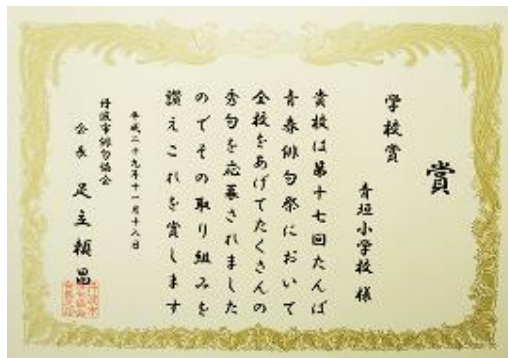 賞
学校賞
青垣小学校 様
貴校は第十七回たんば
青春俳句祭において
全校をあげてたくさんの
秀句を応募されました
のでその取り組みを
讃えこれを賞します
平成二十九年十一月十八日
丹波市俳句協会
会長 足立頼昌